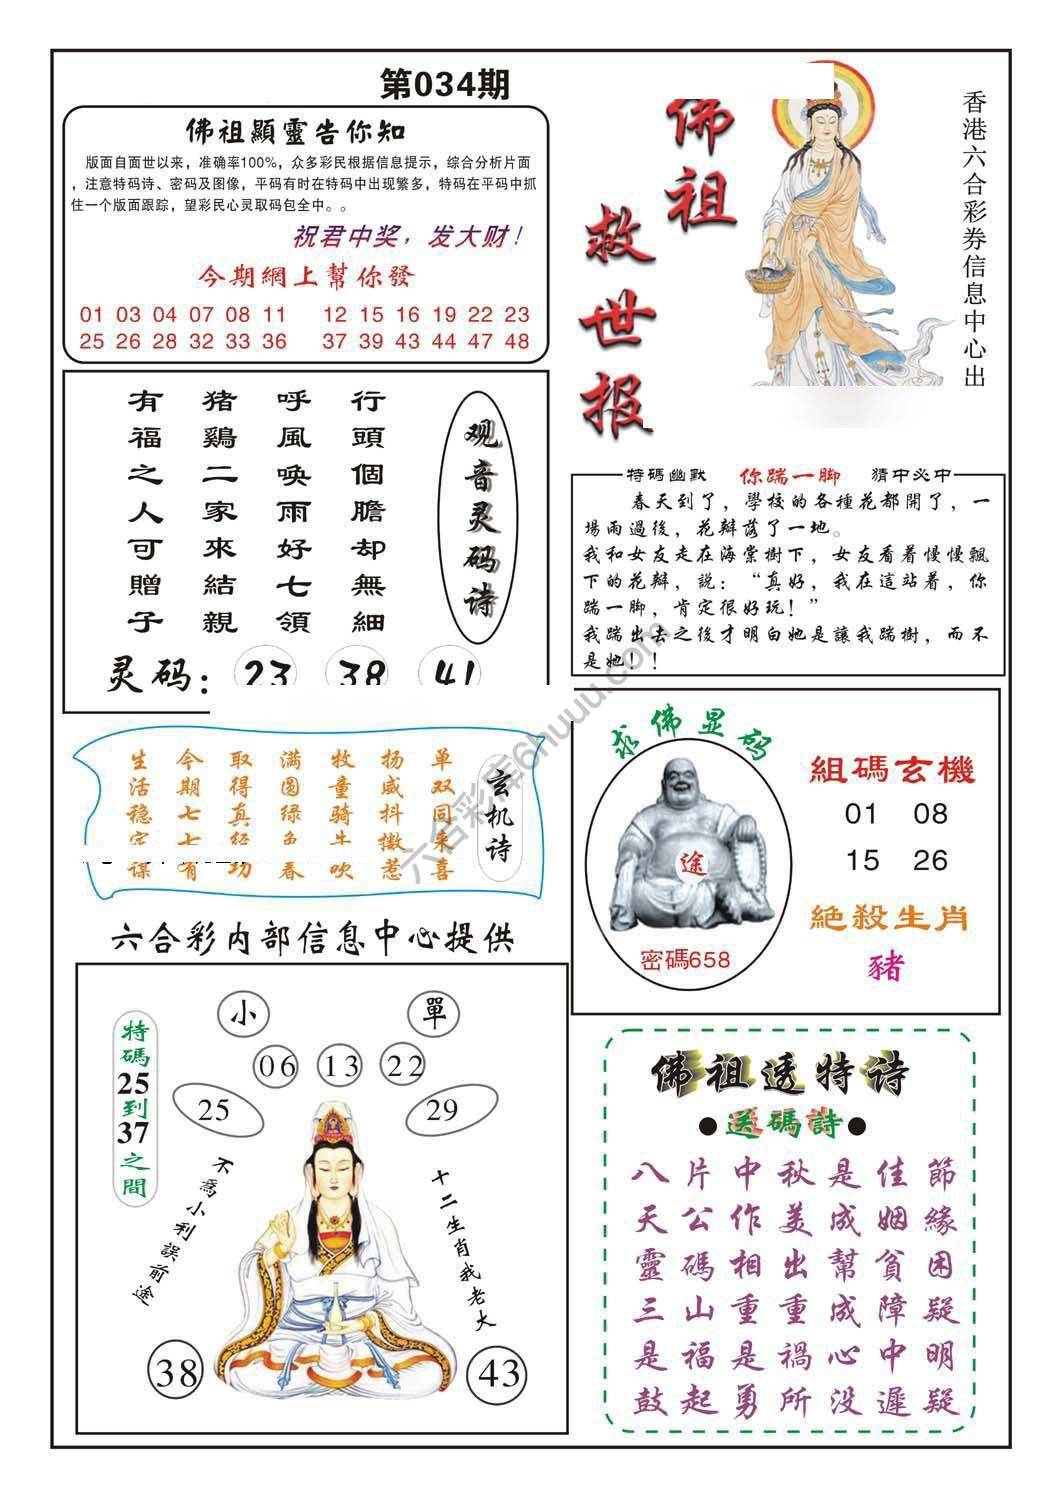 第034期
佛祖顯靈告你知
版面自面世以来，准确率100%，众多彩民根据信息提示，综合分析片面
，注意特码诗、密码及图像，平码有时在特码中出现繁多，特码在平码中抓
住一个版面跟踪，望彩民心灵取码包全中。。
祝君中奖，发大财！
今期網上幫你發
01 03 04 07 08 11 12 15 16 19 22 23
25 26 28 32 33 36 37 39 43 44 47 48
佛祖
救世报
香港六合彩券信息中心出
观音灵码诗
行頭個膽却無細
呼風喚雨好七領
猪鷄二家來結親
有福之人可贈子
灵码：23 38 41
特碼幽默 你踹一脚 猜中必中
春天到了，學校的各種花都開了，一
場雨過後，花瓣落了一地。
我和女友走在海棠樹下，女友看着慢慢飄
下的花瓣，説：“真好，我在這站着，你
踹一脚，肯定很好玩！”
我踹出去之後才明白她是讓我踹樹，而不
是她！！
玄机诗
单双同来喜
扬威抖擞惹
牧童骑牛吹
满圆绿色春
取得真经功
今期七七有
生活稳定谋
求佛显码
途
密碼658
組碼玄機
01 08
15 26
絶殺生肖
豬
六合彩内部信息中心提供
特碼25到37之間
小 單
06 13 22
25 29
不爲小利誤前途
十二生肖我老大
38 43
佛祖透特诗
●送碼詩●
八片中秋是佳節
天公作美成姻緣
靈碼相出幫貧困
三山重重成障疑
是福是禍心中明
鼓起勇所没遲疑
六合彩库6huuu.com